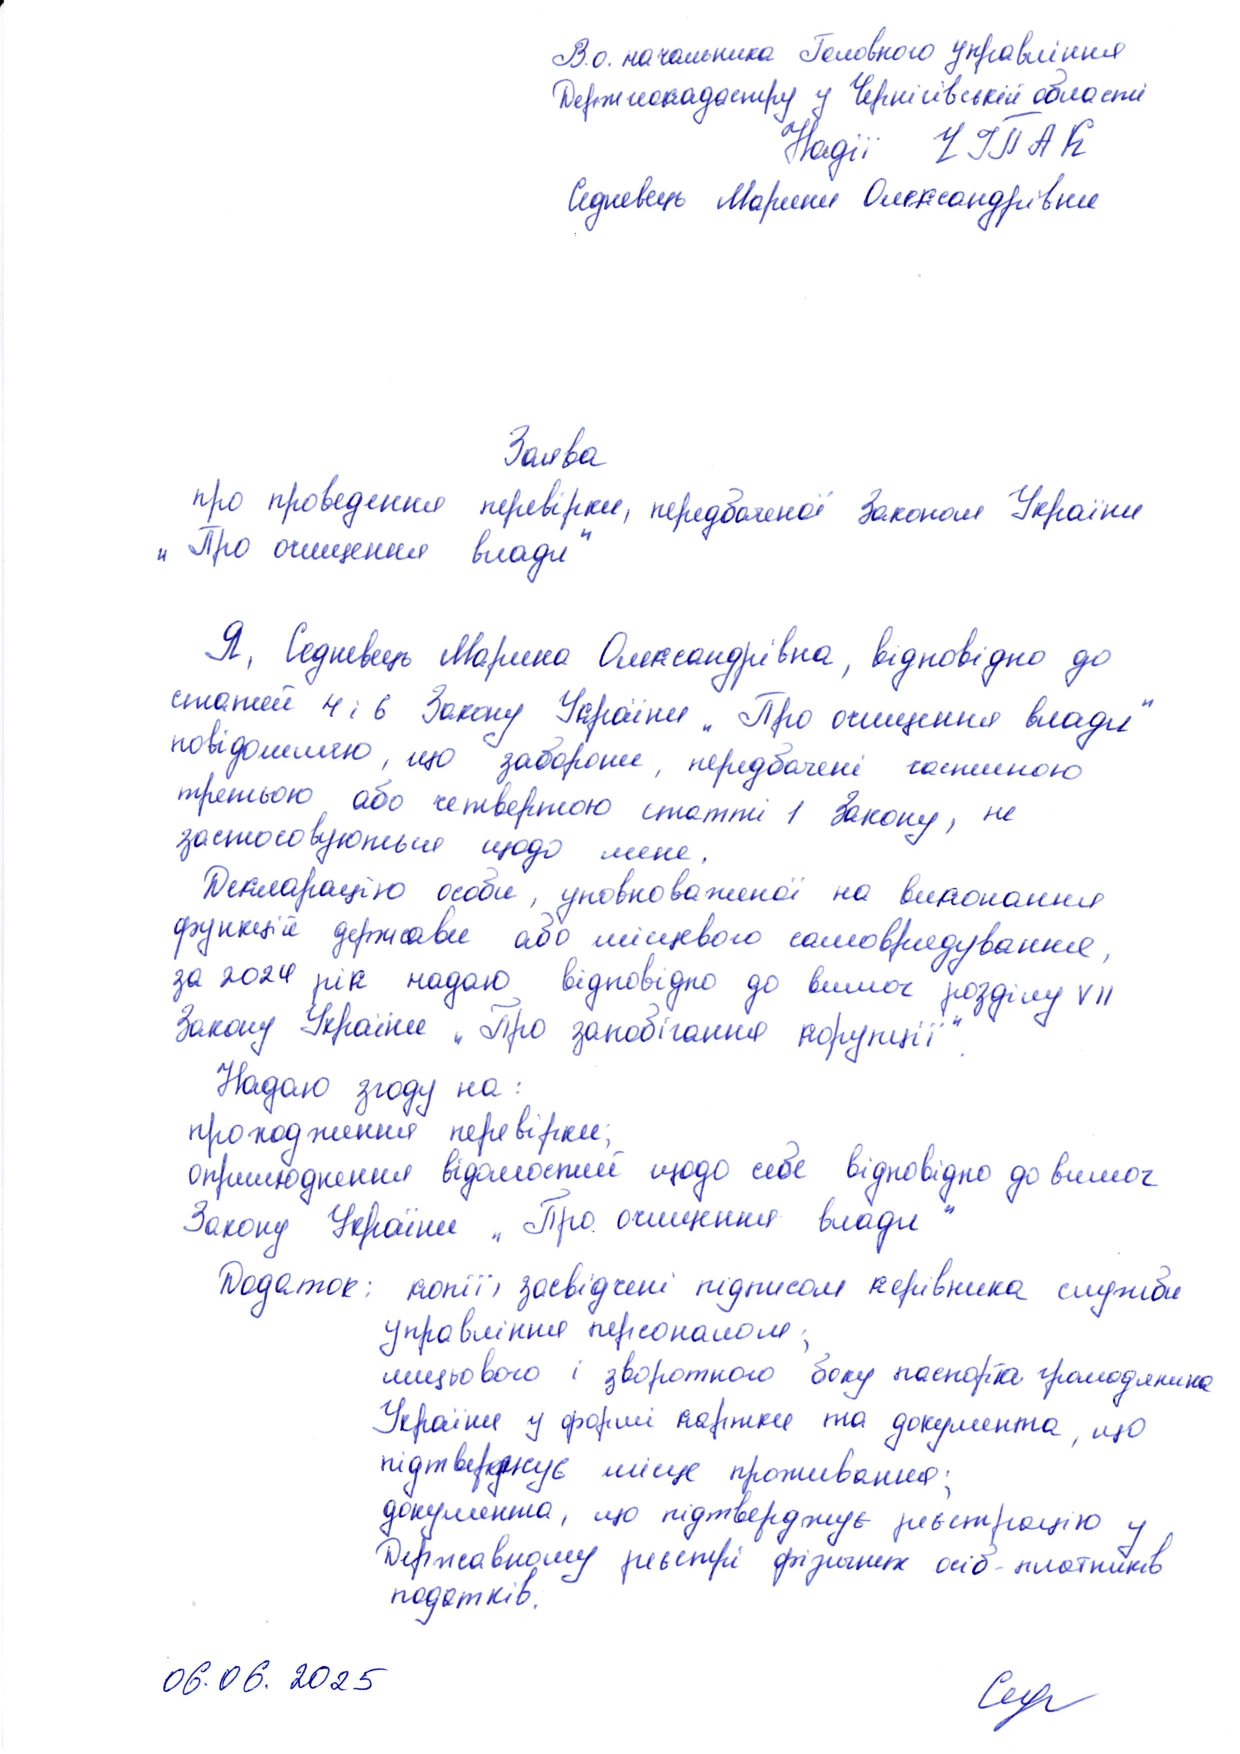 В.о. начальника Головного управління
Держгеокадастру у Чернігівській області
Надії ЧІПАК
Седневець Марини Олександрівни
Заява
про проведення перевірки, передбаченої Законом України
„Про очищення влади“
Я, Седневець Марина Олександрівна, відповідно до
статей 4 і 6 Закону України „Про очищення влади“
повідомляю, що заборони, передбачені частиною
третьою або четвертою статті 1 Закону, не
застосовуються щодо мене.
Декларацію особи, уповноваженої на виконання
функцій держави або місцевого самоврядування,
за 2024 рік надаю відповідно до вимог розділу VII
Закону України „Про запобігання корупції“.
Надаю згоду на:
проходження перевірки;
оприлюднення відомостей щодо себе відповідно до вимог
Закону України „Про очищення влади“
Додаток: копії, засвідчені підписом керівника служби
управління персоналом;
лицьового і зворотного боку паспорта громадянина
України у формі картки та документа, що
підтверджує місце проживання;
документа, що підтверджує реєстрацію у
Державному реєстрі фізичних осіб-платників
податків.
06.06.2025